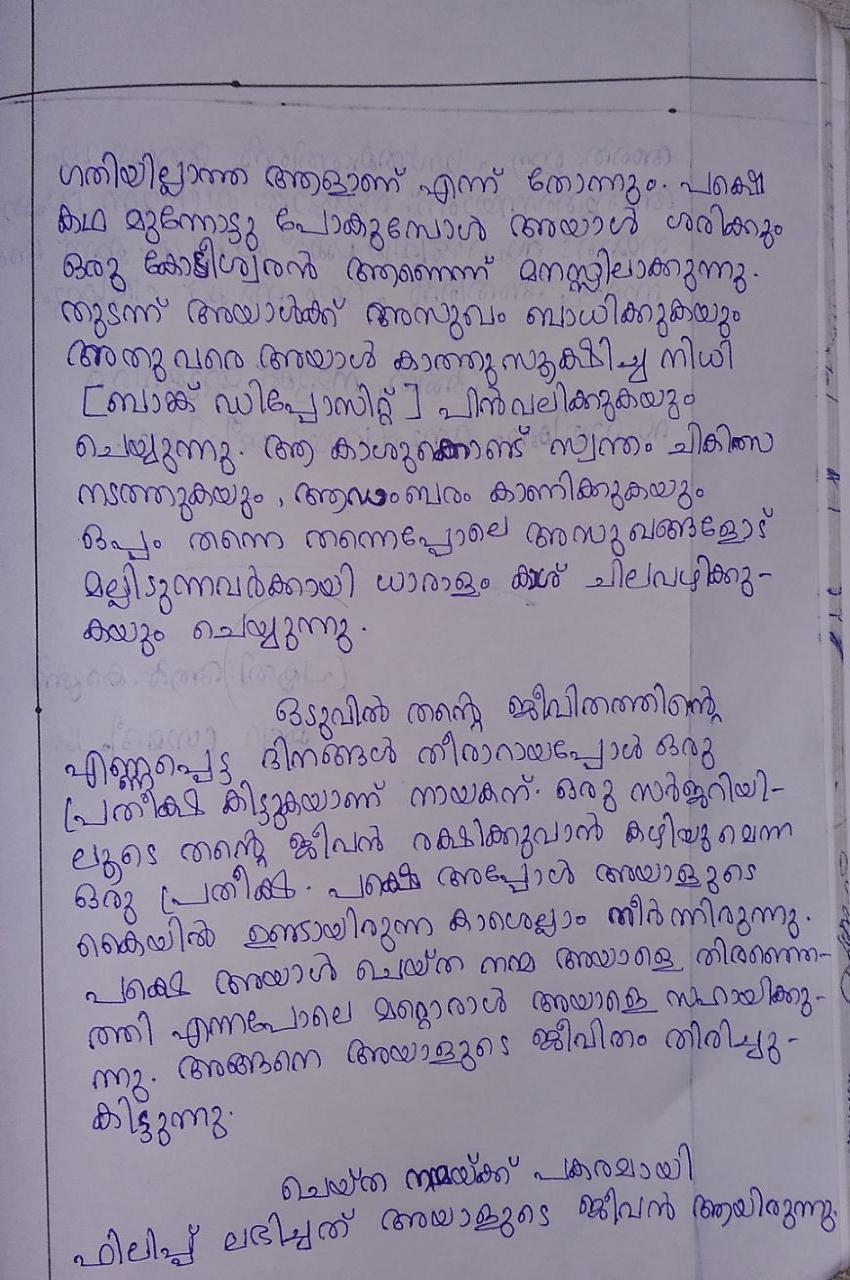 ഗതിയില്ലാത്ത ആളാണ് എന്ന് തോന്നും. പക്ഷെ
കഥ മുന്നോട്ടു പോകുമ്പോൾ അയാൾ ശരിക്കും
ഒരു കോടീശ്വരൻ ആണെന്ന് മനസ്സിലാക്കുന്നു.
തുടന്ന് അയാൾക്ക് അസുഖം ബാധിക്കുകയും
അതുവരെ അയാൾ കാത്തുസൂക്ഷിച്ച നിധി
[ബാങ്ക് ഡിപ്പോസിറ്റ്] പിൻവലിക്കുകയും
ചെയ്യുന്നു. ആ കാശുകൊണ്ട് സ്വന്തം ചികിത്സ
നടത്തുകയും, ആഡംബരം കാണിക്കുകയും
ഒപ്പം തന്നെ തന്നെപ്പോലെ അസുഖങ്ങളോട്
മല്ലിടുന്നവർക്കായി ധാരാളം കാശ് ചിലവഴിക്കു-
കയും ചെയ്യുന്നു.
ഒടുവിൽ തന്റെ ജീവിതത്തിന്റെ
എണ്ണപ്പെട്ട ദിനങ്ങൾ തീരാറായപ്പോൾ ഒരു
പ്രതീക്ഷ കിട്ടുകയാണ് നായകന്. ഒരു സർജറിയി-
ലൂടെ തന്റെ ജീവൻ രക്ഷിക്കുവാൻ കഴിയുമെന്ന
ഒരു പ്രതീക്ഷ. പക്ഷെ അപ്പോൾ അയാളുടെ
കൈയിൽ ഉണ്ടായിരുന്ന കാശെല്ലാം തീർന്നിരുന്നു.
പക്ഷെ അയാൾ ചെയ്ത നന്മ അയാളെ തിരഞ്ഞെ-
ത്തി എന്നപോലെ മറ്റൊരാൾ അയാളെ സഹായിക്കു-
ന്നു. അങ്ങനെ അയാളുടെ ജീവിതം തിരിച്ചു-
കിട്ടുന്നു.
ചെയ്ത നന്മയ്ക്ക് പകരമായി
ഫിലിപ്പ് ലഭിച്ചത് അയാളുടെ ജീവൻ ആയിരുന്നു.